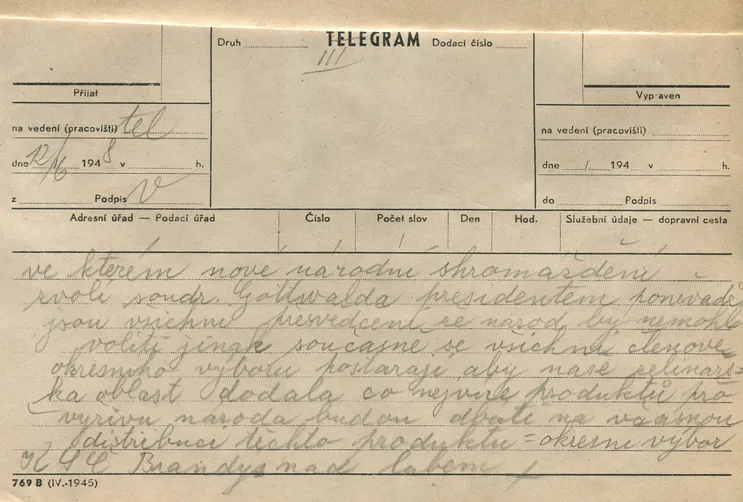 Druh TELEGRAM Dodací číslo
III
Přijat
Vypraven
na vedení (pracovišti) tel
na vedení (pracovišti)
dne 12/6 1948 v h.
dne / 194 v h.
z Podpis V
do Podpis
Adresní úřad — Podací úřad Číslo Počet slov Den Hod. Služební údaje — dopravní cesta
ve kterém nové národní shromáždění
zvolí soudr. Gottwalda presidentem poněvadž
jsou všichni přesvědčeni že národ by nemohl
voliti jinak současně se všichni členové
okresního výboru postarají aby naše zelinářs=
ka oblast dodala co nejvíce produktů pro
výživu národa budou dbáti na včasnou
distribuci těchto produktů = okresní výbor
KSČ Brandýs nad labem +
769 B (IV.-1945)